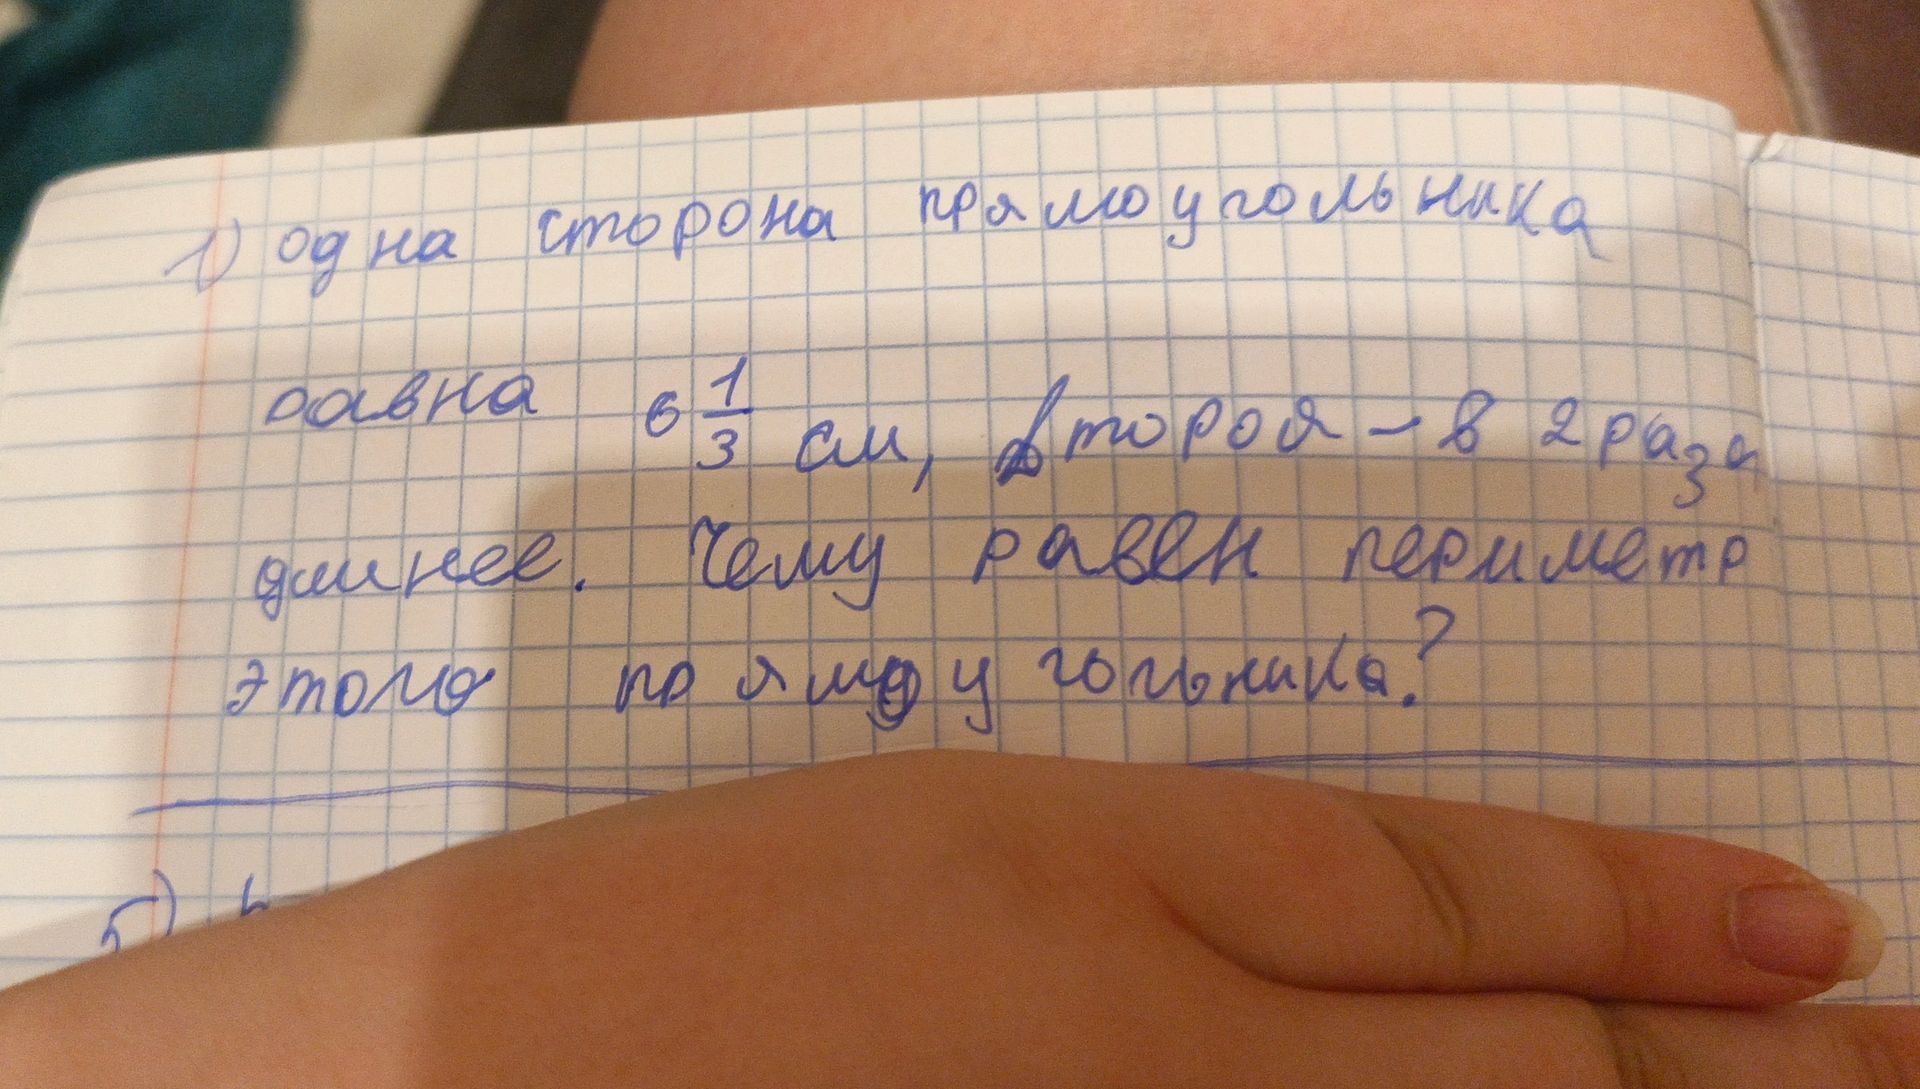 1) одна сторона прямоугольника
равна 6 1/3 см, вторая – в 2 раза
длиннее. Чему равен периметр
этого прямоугольника?
5)